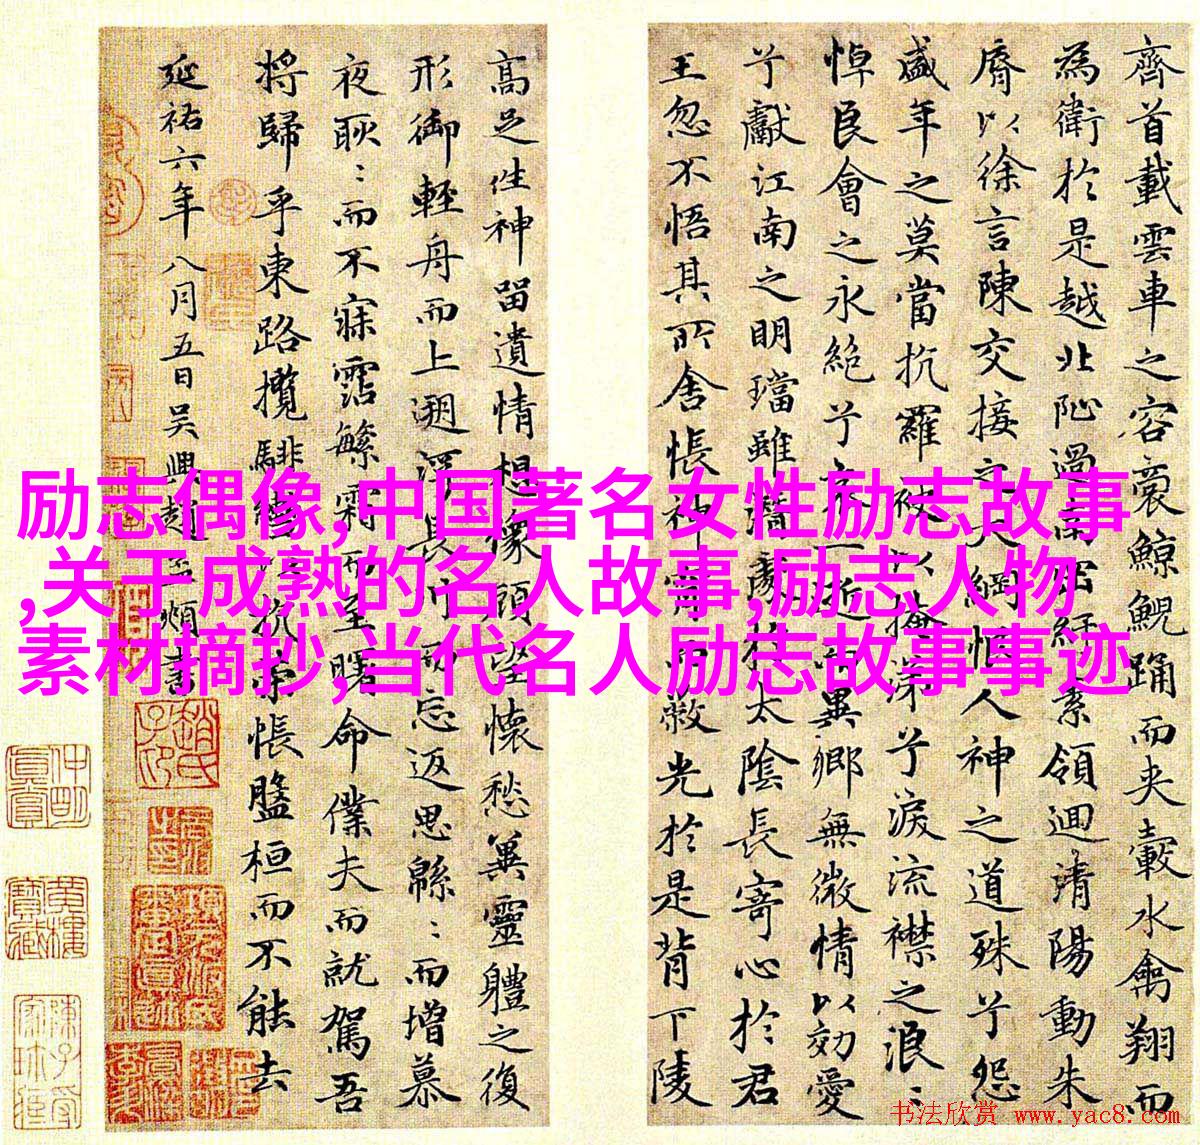 齊首載雲車之容裔鯨鯢踊而夾轂水禽翔而
為衛於是越北沚過南岡紆素領迴清陽動朱
脣以徐言陳交接之大綱恨人神之道殊兮怨
盛年之莫當抗羅袂以掩涕兮淚流襟之浪〻
悼良會之永絕兮哀一逝而異鄉無微情以効愛
兮獻江南之明璫雖潛處於太陰長寄心於君
王忽不悟其所舍悵神宵而蔽光於是背下陵
高足往神留遺情想像顧望懷愁冀靈體之復
形御輕舟而上遡浮長川而忘返思緜〻而增慕
夜耿〻而不寐霑繁霜而至曙命僕夫而就駕吾
將歸乎東路攬騑轡以抗策悵盤桓而不能去
延祐六年八月五日吳興趙孟頫書
励志偶像,中国著名女性励志故事
,关于成熟的名人故事,励志人物
素材摘抄,当代名人励志故事事迹
书法欣赏 www.yac8.com